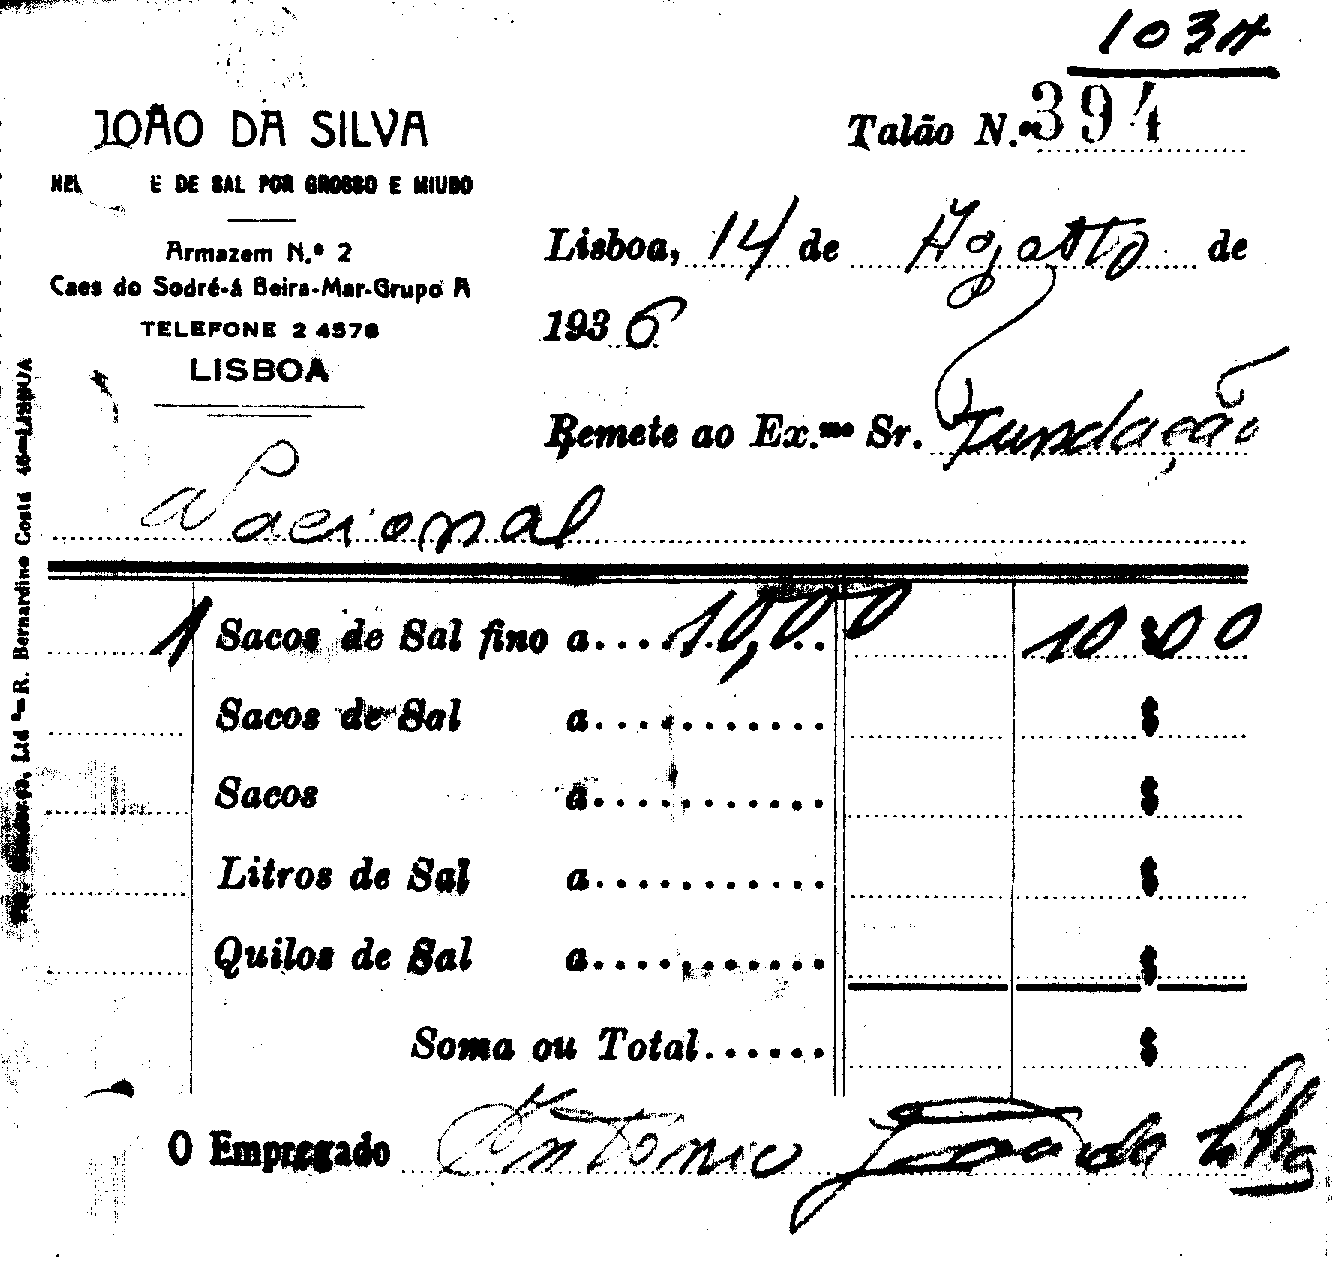 103A
JOÃO DA SILVA
Talão N.º 394
E DE SAL POR GROSSO E MIUDO
Armazem N.º 2
Caes do Sodré-á Beira-Mar-Grupo A
TELEFONE 2 4578
LISBOA
Lisboa, 14 de Agosto de
1936
Remete ao Ex.mo Sr. Fundação
Nacional
1 Sacos de Sal fino a.... 10,00 10$00
Sacos de Sal a........... $
Sacos a........... $
Litros de Sal a........... $
Quilos de Sal a........... $
Soma ou Total...... $
O Empregado Antonio da Silva
Ltd.ª—R. Bernardino Costa 46—LISBOA